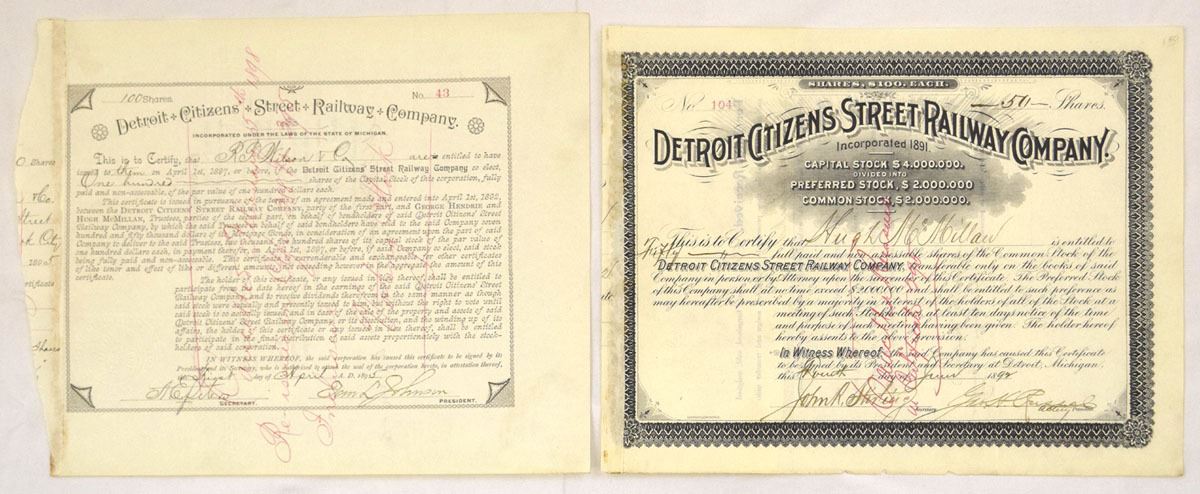 100 Shares. No. 43
Detroit Citizens Street Railway Company.
INCORPORATED UNDER THE LAWS OF THE STATE OF MICHIGAN.
This is to Certify, that R. T. Wilson & Co are entitled to have
issued to them on April 1st, 1897, or before, if said Detroit Citizens' Street Railway Company so elect,
One hundred shares of the Capital Stock of this corporation, fully
paid and non-assessable, of the par value of one hundred dollars each.
This certificate is issued in pursuance of the terms of an agreement made and entered into April 1st, 1892,
between the DETROIT CITIZENS' STREET RAILWAY COMPANY, party of the first part, and GEORGE HENDRIE and
HUGH MCMILLAN, Trustees, parties of the second part, on behalf of bondholders of said Detroit Citizens' Street
Railway Company, by which the said Trustees on behalf of said bondholders have sold to the said Company seven
hundred and fifty thousand dollars of the Mortgage Bonds, in consideration of an agreement upon the part of said
Company to deliver to the said Trustees, two thousand five hundred shares of its capital stock of the par value of
one hundred dollars each, in payment on April 1st, 1897, or before, if said Company so elect, said stock
being fully paid and non-assessable. This certificate is surrenderable and exchangeable for other certificates
of like tenor and effect of like or different amounts, not exceeding however in the aggregate the amount of this
certificate.
The holder of this certificate, or any issued in lieu thereof, shall be entitled to
participate from the date hereof in the earnings of the said Detroit Citizens' Street
Railway Company, and to receive dividends therefrom in the same manner as though
said stock was at present actually issued to him, but without the right to vote until
said stock is so actually issued, and in case of the sale of the property and assets of said
Detroit Citizens' Street Railway Company, or its dissolution, and the winding up of its
affairs, the holder of this certificate or any issued in lieu thereof, shall be entitled
to participate in the final distribution of said assets proportionately with the stock-
holders of said corporation.
IN WITNESS WHEREOF, the said corporation has caused this certificate to be signed by its
President and Secretary, who is authorized to attach the seal of the corporation hereto, in attestation thereof,
this first day of April A. D. 1895
SECRETARY. PRESIDENT.
SHARES, $100. EACH.
No 104 50 Shares.
DETROIT CITIZENS STREET RAILWAY COMPANY.
Incorporated 1891.
CAPITAL STOCK $4.000.000.
DIVIDED INTO
PREFERRED STOCK, $2.000.000
COMMON STOCK, $2.000.000.
This is to Certify that Hugh McMillan is entitled to
Fifty full paid and non assessable shares of the Common Stock of the
DETROIT CITIZENS STREET RAILWAY COMPANY, transferable only on the books of said
Company in person or by Attorney upon the surrender of this Certificate. The Preferred Stock
of this Company shall at no time exceed $2,000,000 and shall be entitled to such preference as
may hereafter be prescribed by a majority in interest of the holders of all of the Stock at a
meeting of such Stockholders, at least ten days notice of the time
and purpose of such meeting having been given. The holder hereof
hereby assents to the above provision.
In Witness Whereof the said Company has caused this Certificate
to be signed by its President and Secretary at Detroit, Michigan.
this Fourth day of June 1892
Secretary